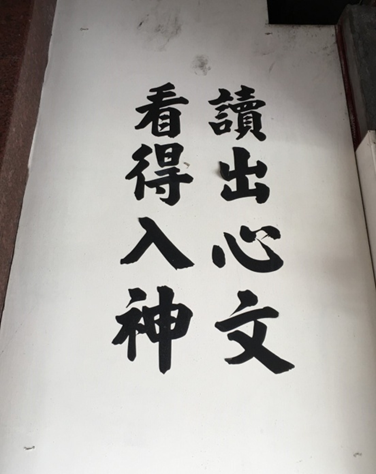 讀出心文
看得入神